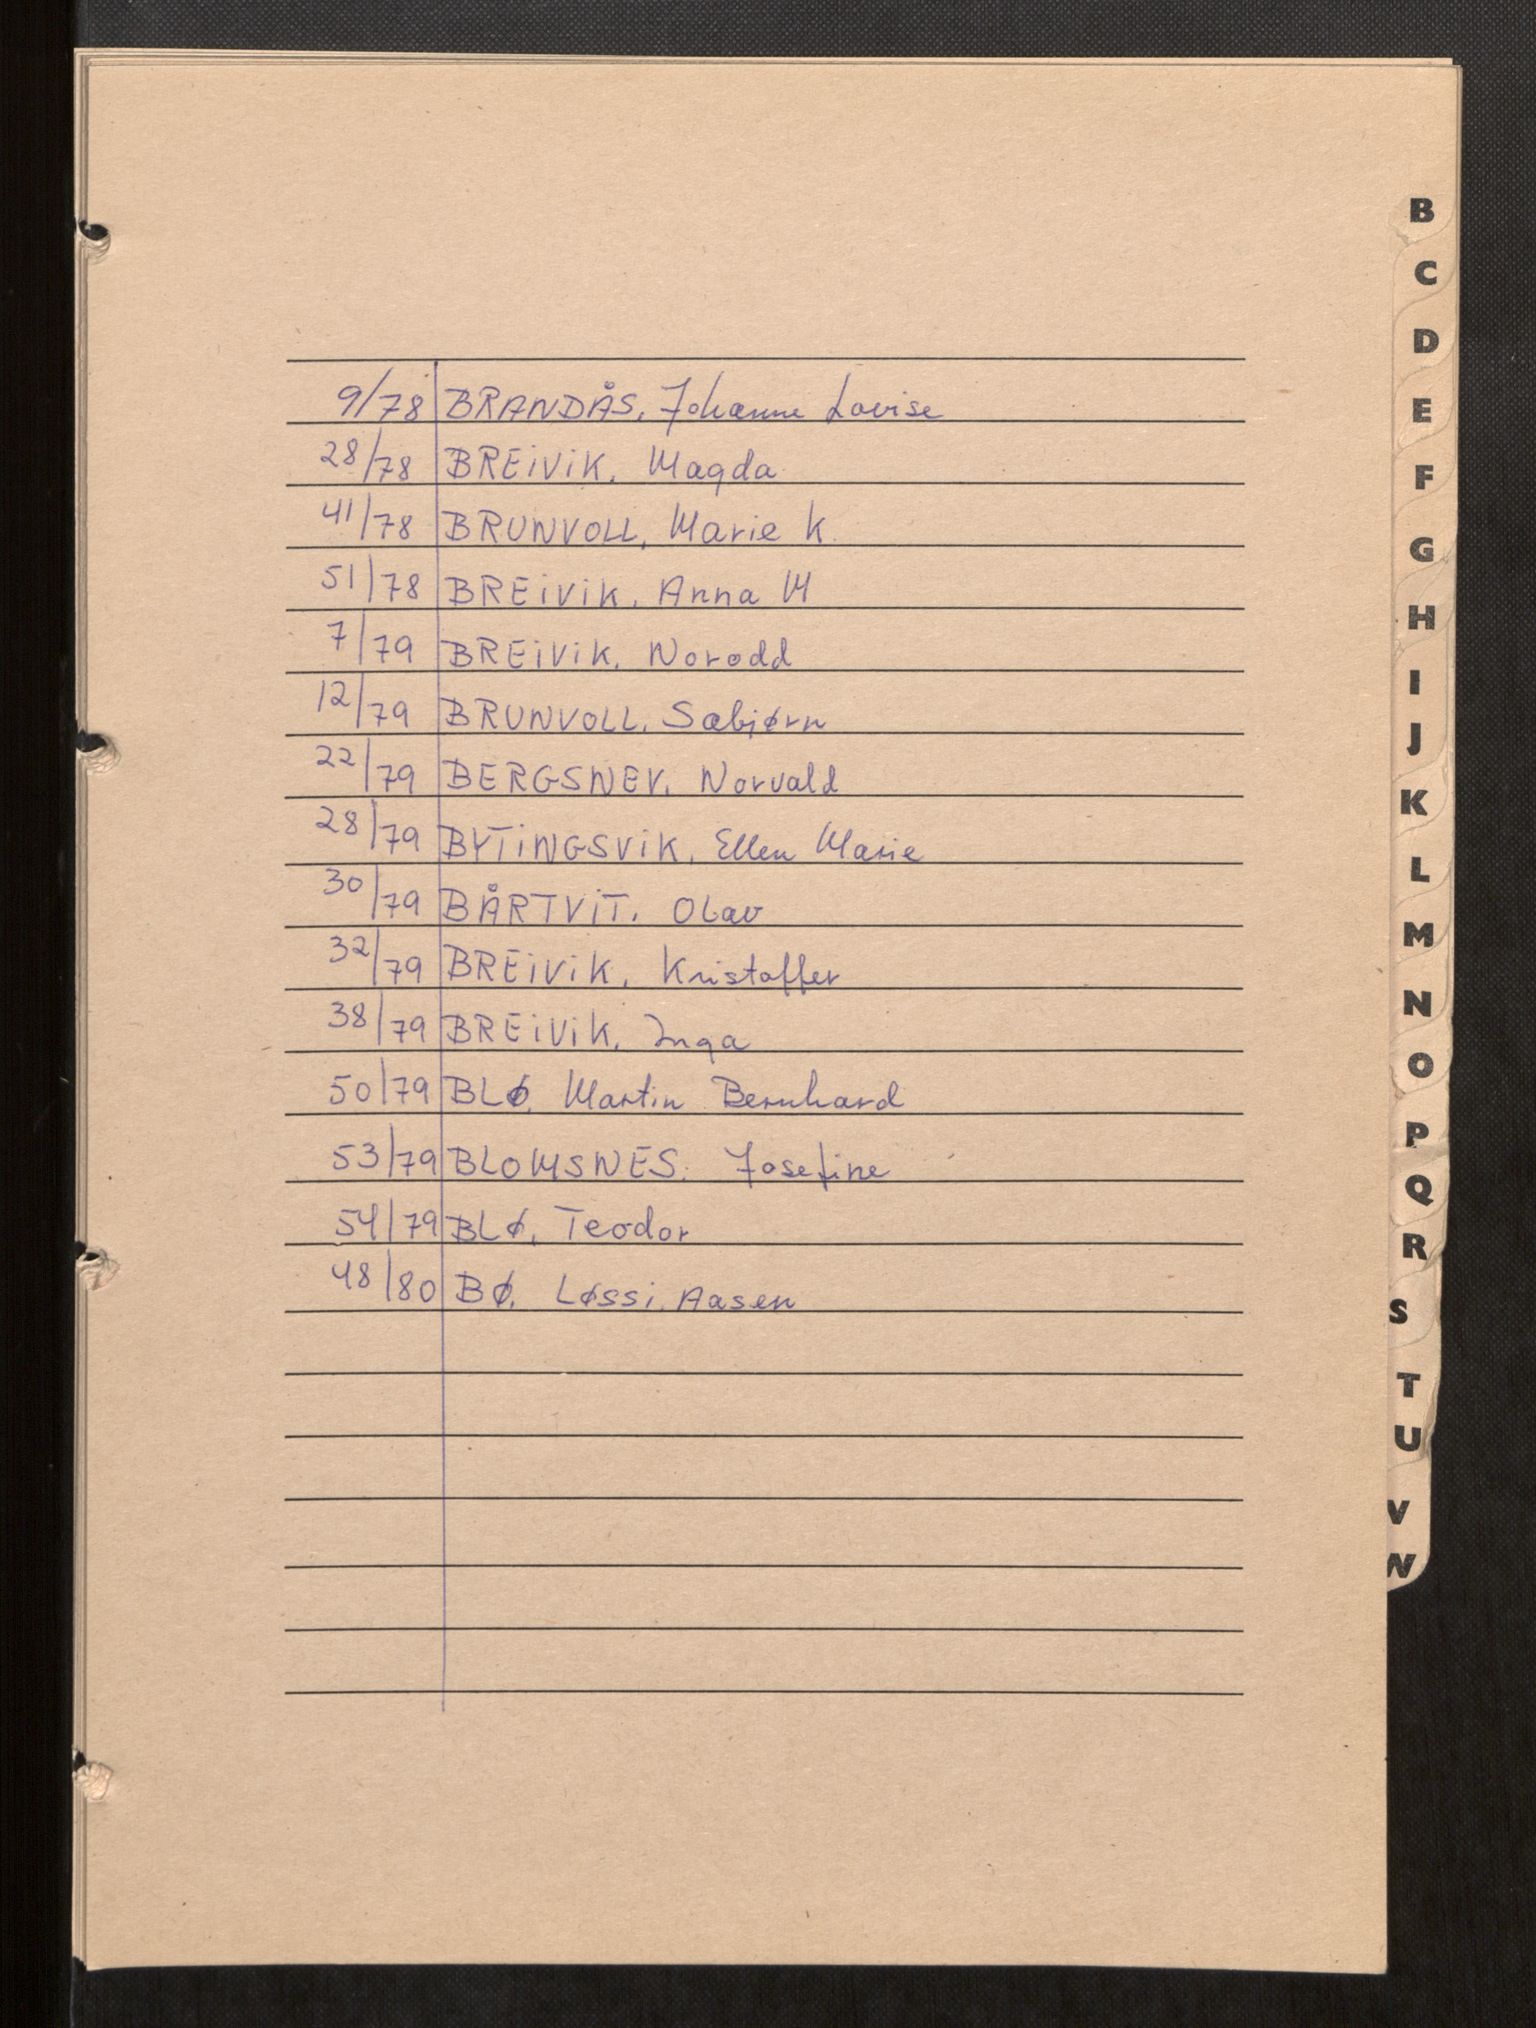 9/78 BRANDÅS, Johanne Lovise
28/78 BREiViK, Magda
41/78 BRUNVOLL, Marie K.
51/78 BREiViK, Anna M
7/79 BREiViK, Norodd
12/79 BRUNVOLL, Sæbjørn
22/79 BERGSNEV, Norvald
28/79 BYTiNGSViK, Ellen Marie
30/79 BÅRTViT, Olav
32/79 BREiViK, Kristoffer
38/79 BREiViK, Inga
50/79 BLØ, Martin Bernhard
53/79 BLOMSNES, Josefine
54/79 BLØ, Teodor
48/80 BØ, Løssi, Aasen
B
C
D
E
F
G
H
I
J
K
L
M
N
O
P
Q
R
S
T
U
V
W